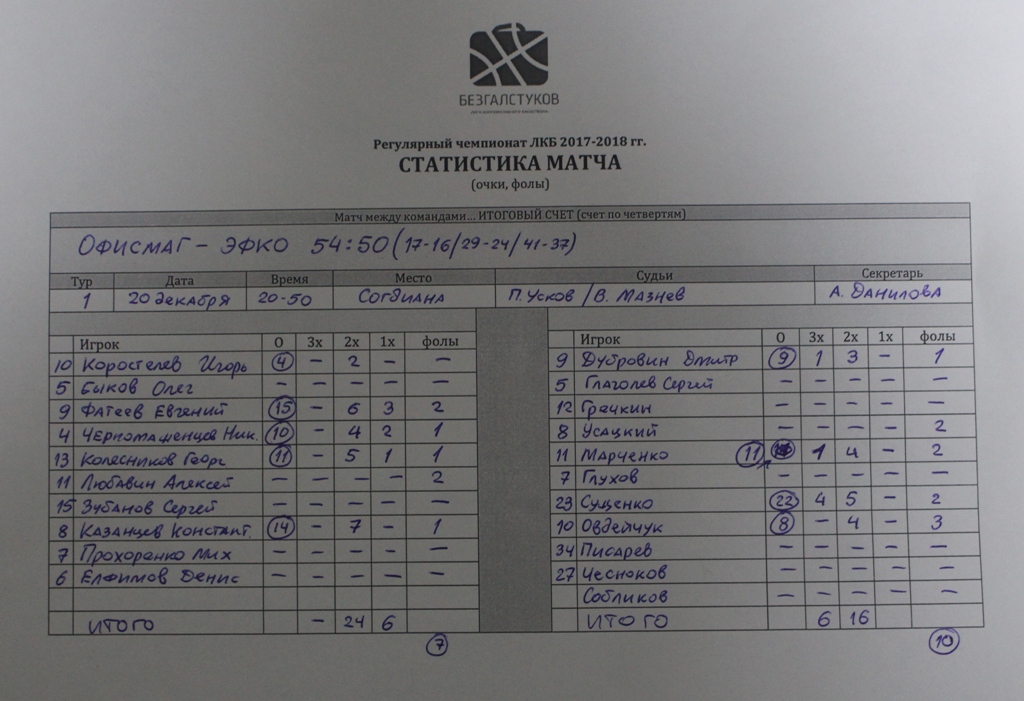 БЕЗГАЛСТУКОВ
Регулярный чемпионат ЛКБ 2017-2018 гг.
СТАТИСТИКА МАТЧА
(очки, фолы)
Матч между командами... ИТОГОВЫЙ СЧЕТ (счет по четвертям)
ОФИСМАГ - ЭФКО 54:50 (17-16/29-24/41-37)
Тур Дата Время Место Судьи Секретарь
1 20 декабря 20-50 Согдиана П. Усков / В. Мазнев А. Данилова
Игрок О 3х 2х 1х фолы
10 Коростелев Игорь 4 – 2 – –
5 Быков Олег – – – – –
9 Фатеев Евгений 15 – 6 3 2
4 Черномашенцев Ник. 10 – 4 2 1
13 Колесников Георг 11 – 5 1 1
11 Любавин Алексей – – – – 2
15 Зубанов Сергей – – – – –
8 Казанцев Констант. 14 – 7 – 1
7 Прохоренко Мих – – – – –
6 Елфимов Денис – – – – –
ИТОГО – 24 6
7
Игрок О 3х 2х 1х фолы
9 Дубровин Дмитр 9 1 3 – 1
5 Глаголев Сергей – – – – –
12 Грачкин – – – – –
8 Усацкий – – – – 2
11 Марченко 11 1 4 – 2
7 Глухов – – – – –
23 Сущенко 22 4 5 – 2
10 Овдейчук 8 – 4 – 3
34 Писарев – – – – –
27 Чесноков – – – – –
Собликов – – – – –
ИТОГО 6 16
10